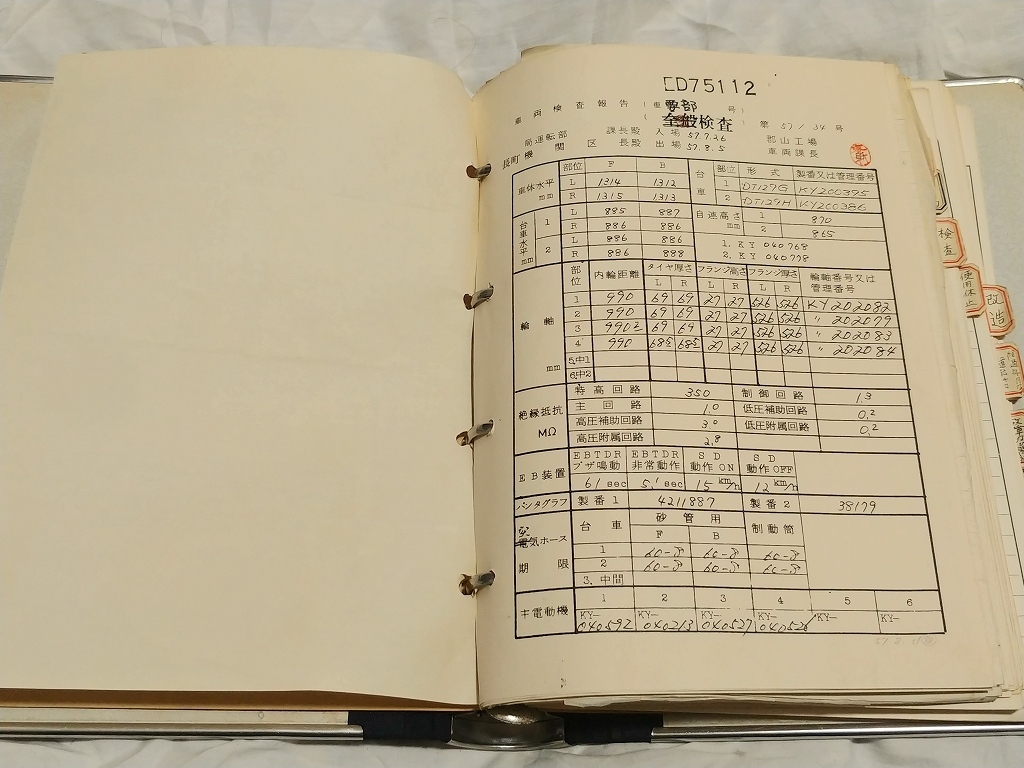 ED75112
車両検査報告 (車 要部 号)
(全般検査 第 57/34 号
局運転部 課長殿 入場 57.7.26 郡山工場
長町機関区長殿 出場 57.8.5 車両課長
部位 F B 台車 部位 形式 製番又は管理番号
車体水平 mm L 1314 1312 1 DT129G KY200395
R 1315 1313 2 DT129H KY200386
台車水平 mm 1 L 885 887 自連高さ mm 1 870
R 886 886 2 865
2 L 886 886 1. KY 040768
R 886 888 2. KY 040778
輪軸 mm 部位 内輪距離 タイヤ厚さ フランジ高さ フランジ厚さ 輪軸番号又は管理番号
L R L R L R
1 990 69 69 27 27 526 526 KY202082
2 990 69 69 27 27 526 526 〃 202079
3 9902 69 69 27 27 526 526 〃 202083
4 990 685 685 27 27 526 526 〃 202084
5,中1
6,中2
絶縁抵抗 MΩ 特高回路 350 制御回路 1.3
主回路 1.0 低圧補助回路 0.2
高圧補助回路 3.0 低圧附属回路 0.2
高圧附属回路 2.8
EB装置 EBTDR ブザ鳴動 EBTDR 非常動作 SD 動作ON SD 動作OFF
61 sec 5.1 sec 15 km/h 12 km/h
パンタグラフ 製番1 4211887 製番2 38179
空電気ホース期限 台車 砂管用 制動筒
F B
1 60-8 60-8 60-8
2 60-8 60-8 60-8
3.中間
主電動機 1 2 3 4 5 6
KY- 040592 040213 KY- 040527 KY- 040526 KY- KY-
検査
使用休止
改造